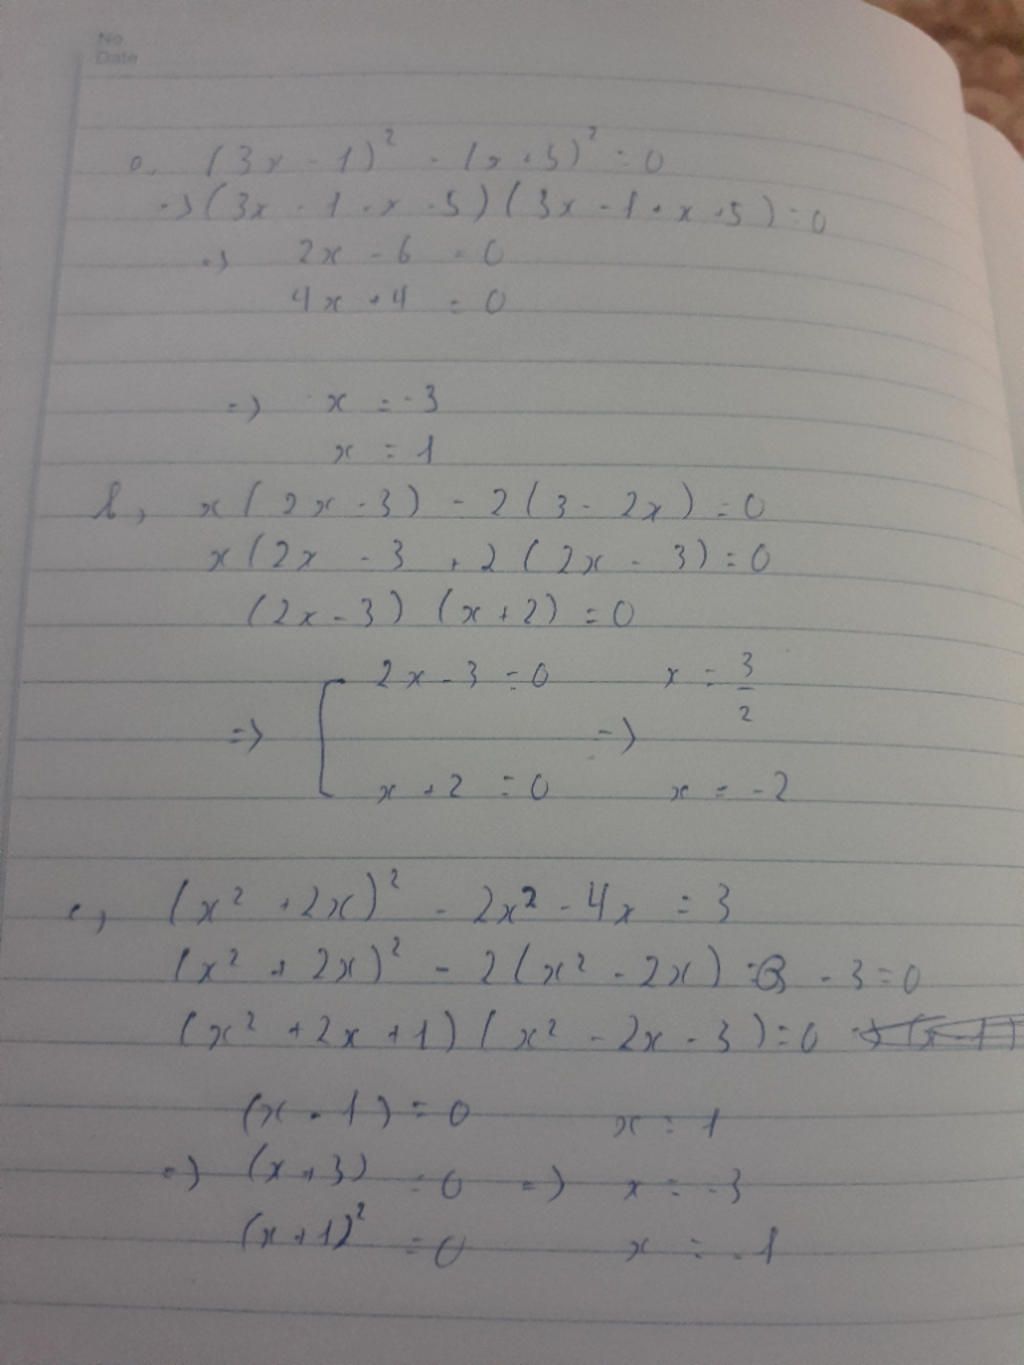 No
Date
a, (3x - 1)² - (x + 5)² = 0
=> (3x - 1 - x - 5) (3x - 1 + x + 5) = 0
=> 2x - 6 = 0
4x + 4 = 0
=> x = -3
x = 1
b, x(2x - 3) - 2(3 - 2x) = 0
x(2x - 3 + 2(2x - 3) = 0
(2x - 3) (x + 2) = 0
2x - 3 = 0 x = 3/2
=> =>
x + 2 = 0 x = -2
c, (x² + 2x)² - 2x² - 4x = 3
(x² + 2x)² - 2(x² - 2x) - 3 = 0
(x² + 2x + 1) (x² - 2x - 3) = 0
(x - 1) = 0 x = 1
=> (x + 3) = 0 => x = -3
(x + 1)² = 0 x = -1